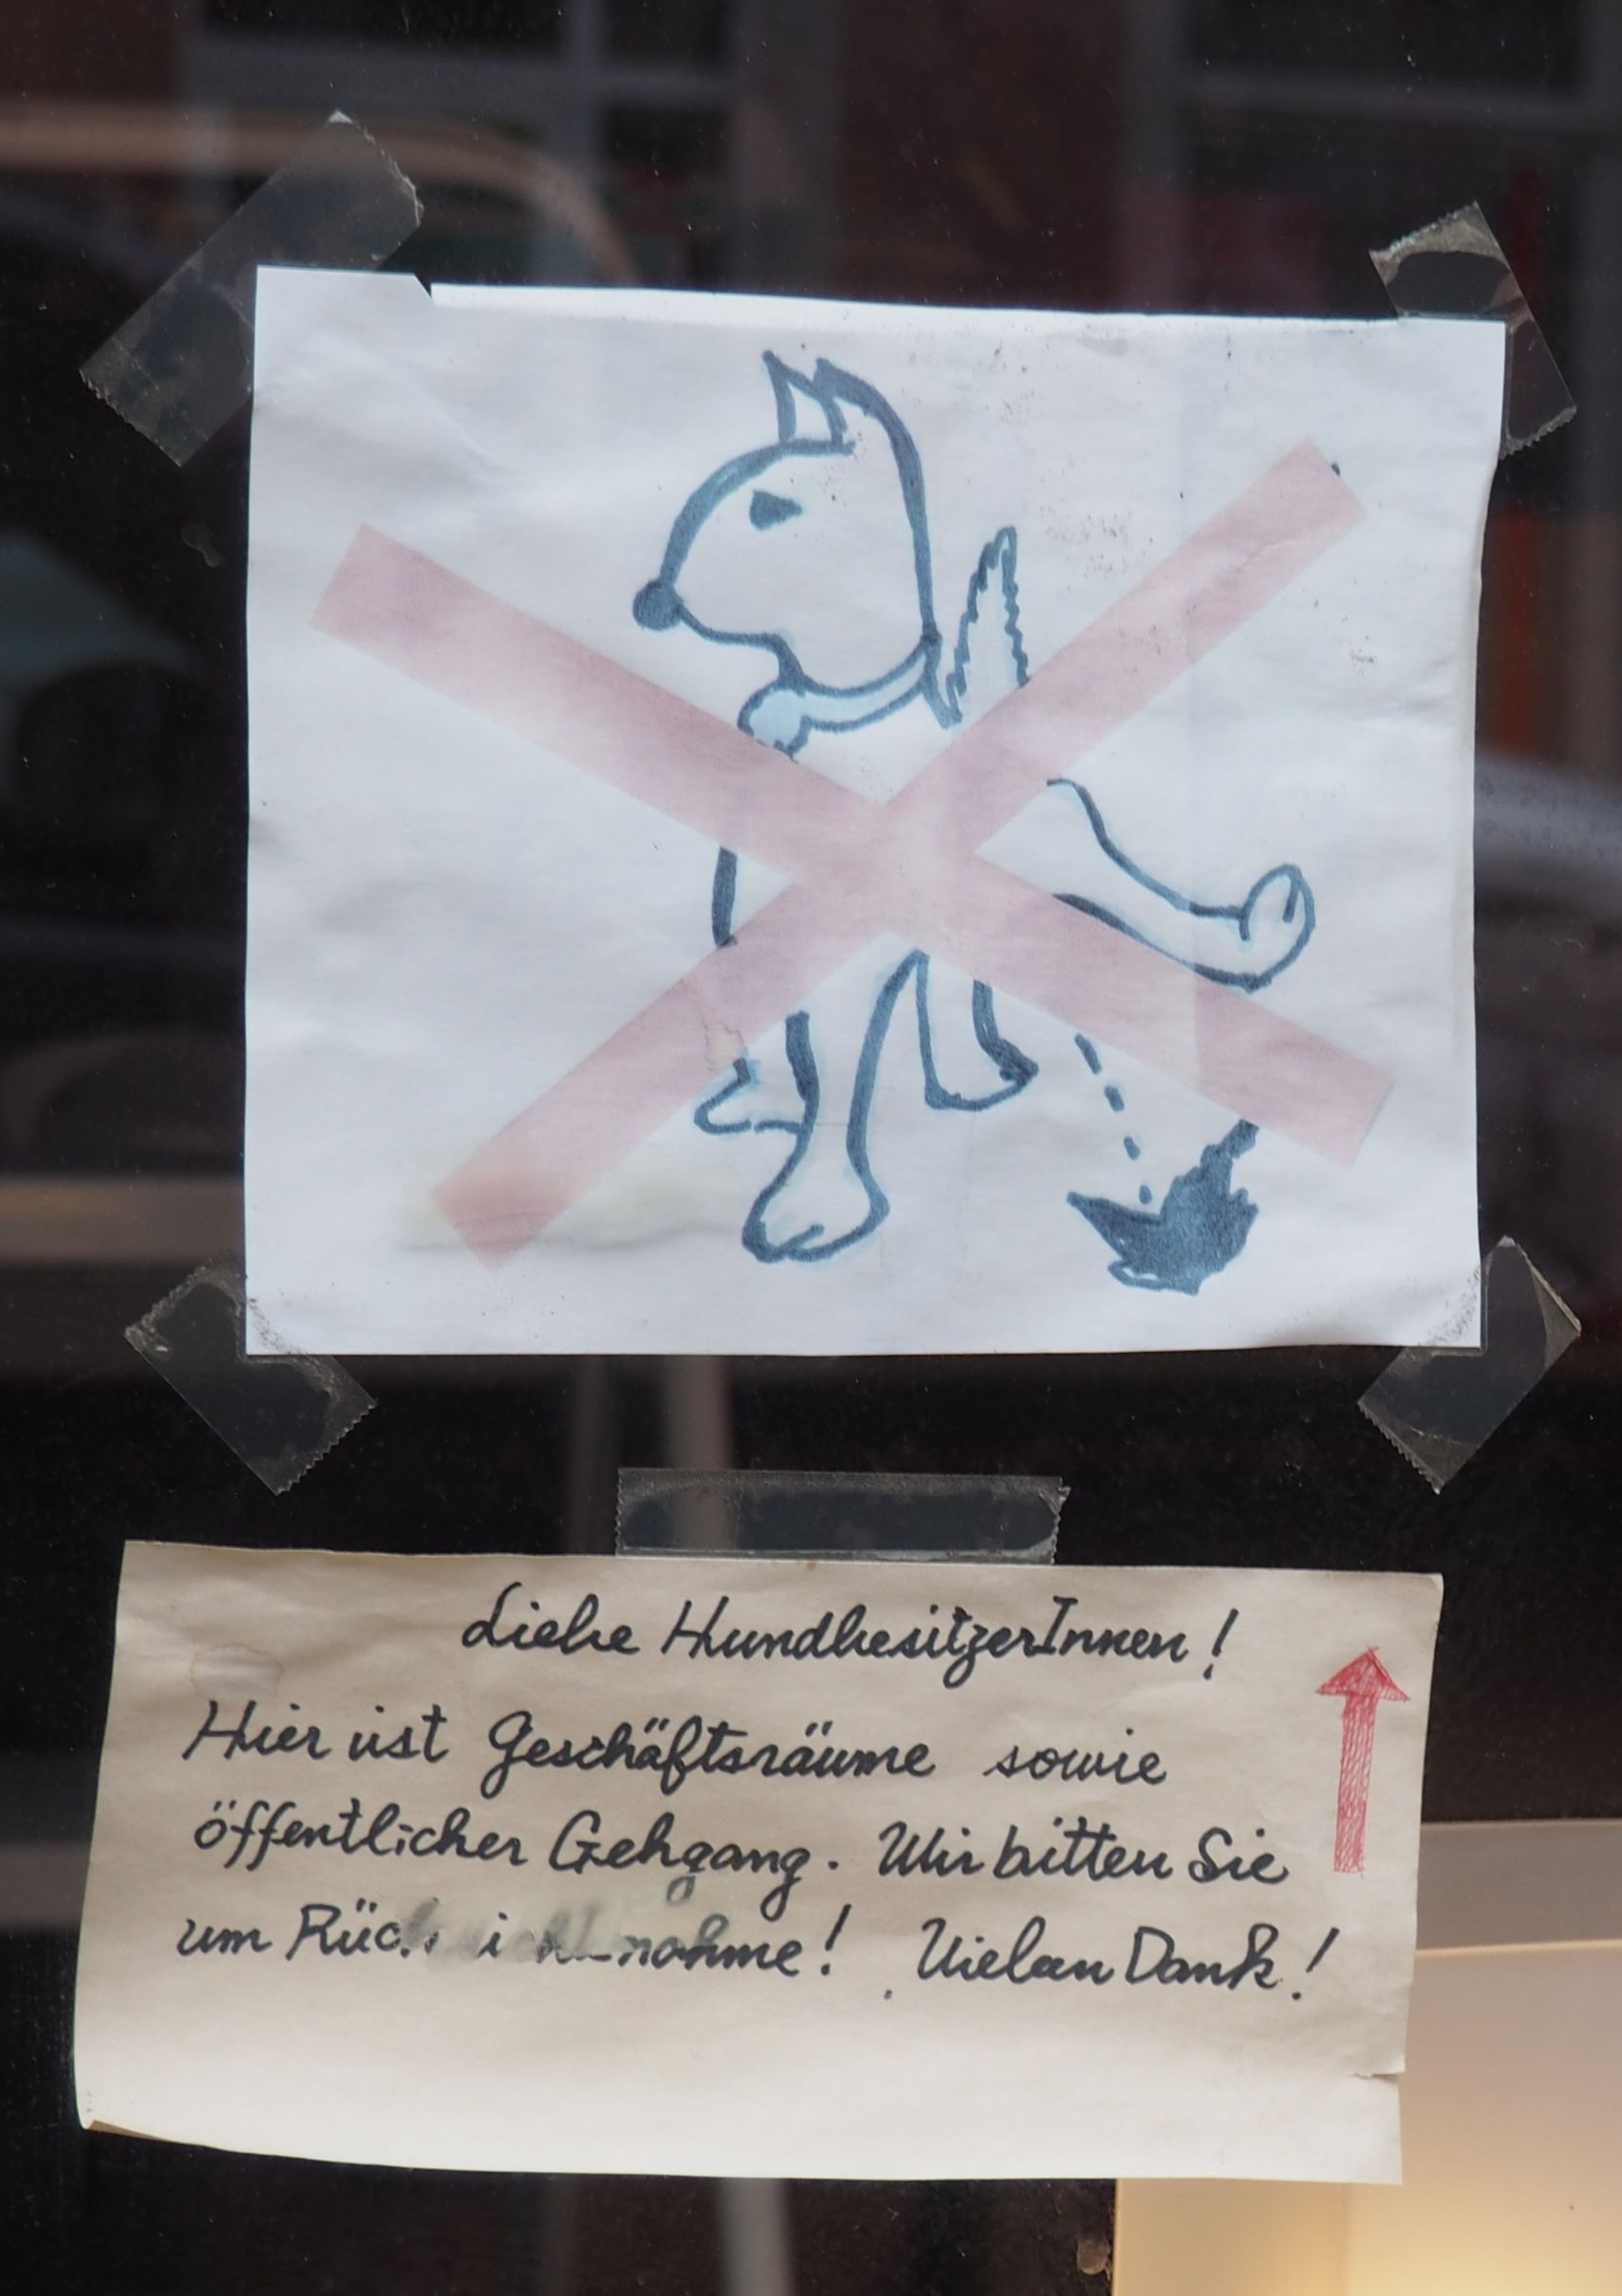 Liebe HundbesitzerInnen!
Hier ist Geschäftsräume sowie
öffentlicher Gehgang. Wir bitten Sie
um! Vielen Dank!